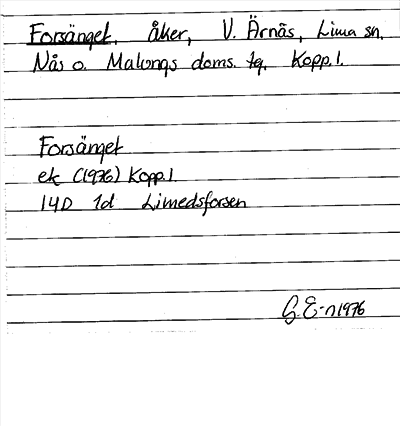 Forsänget, åker, V. Ärnäs, Lima sn,
Nås o. Malungs doms. tg. Kopp. l.
Forsänget
ek (1976) Kopp. l.
14D 1d Limedsforsen
G. E-n 1976